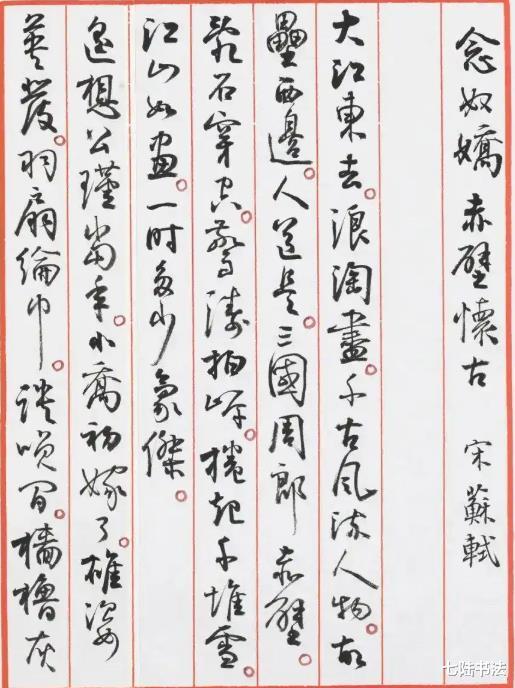 念奴嬌 赤壁懷古 宋 蘇軾
大江東去。浪淘盡。千古風流人物。故
壘西邊。人道是。三國周郎赤壁。
亂石穿空。驚濤拍岸。捲起千堆雪。
江山如畫。一时多少豪傑。
遙想公瑾當年。小喬初嫁了。雄姿
英發。羽扇綸巾。談笑间。檣櫓灰
七陆书法